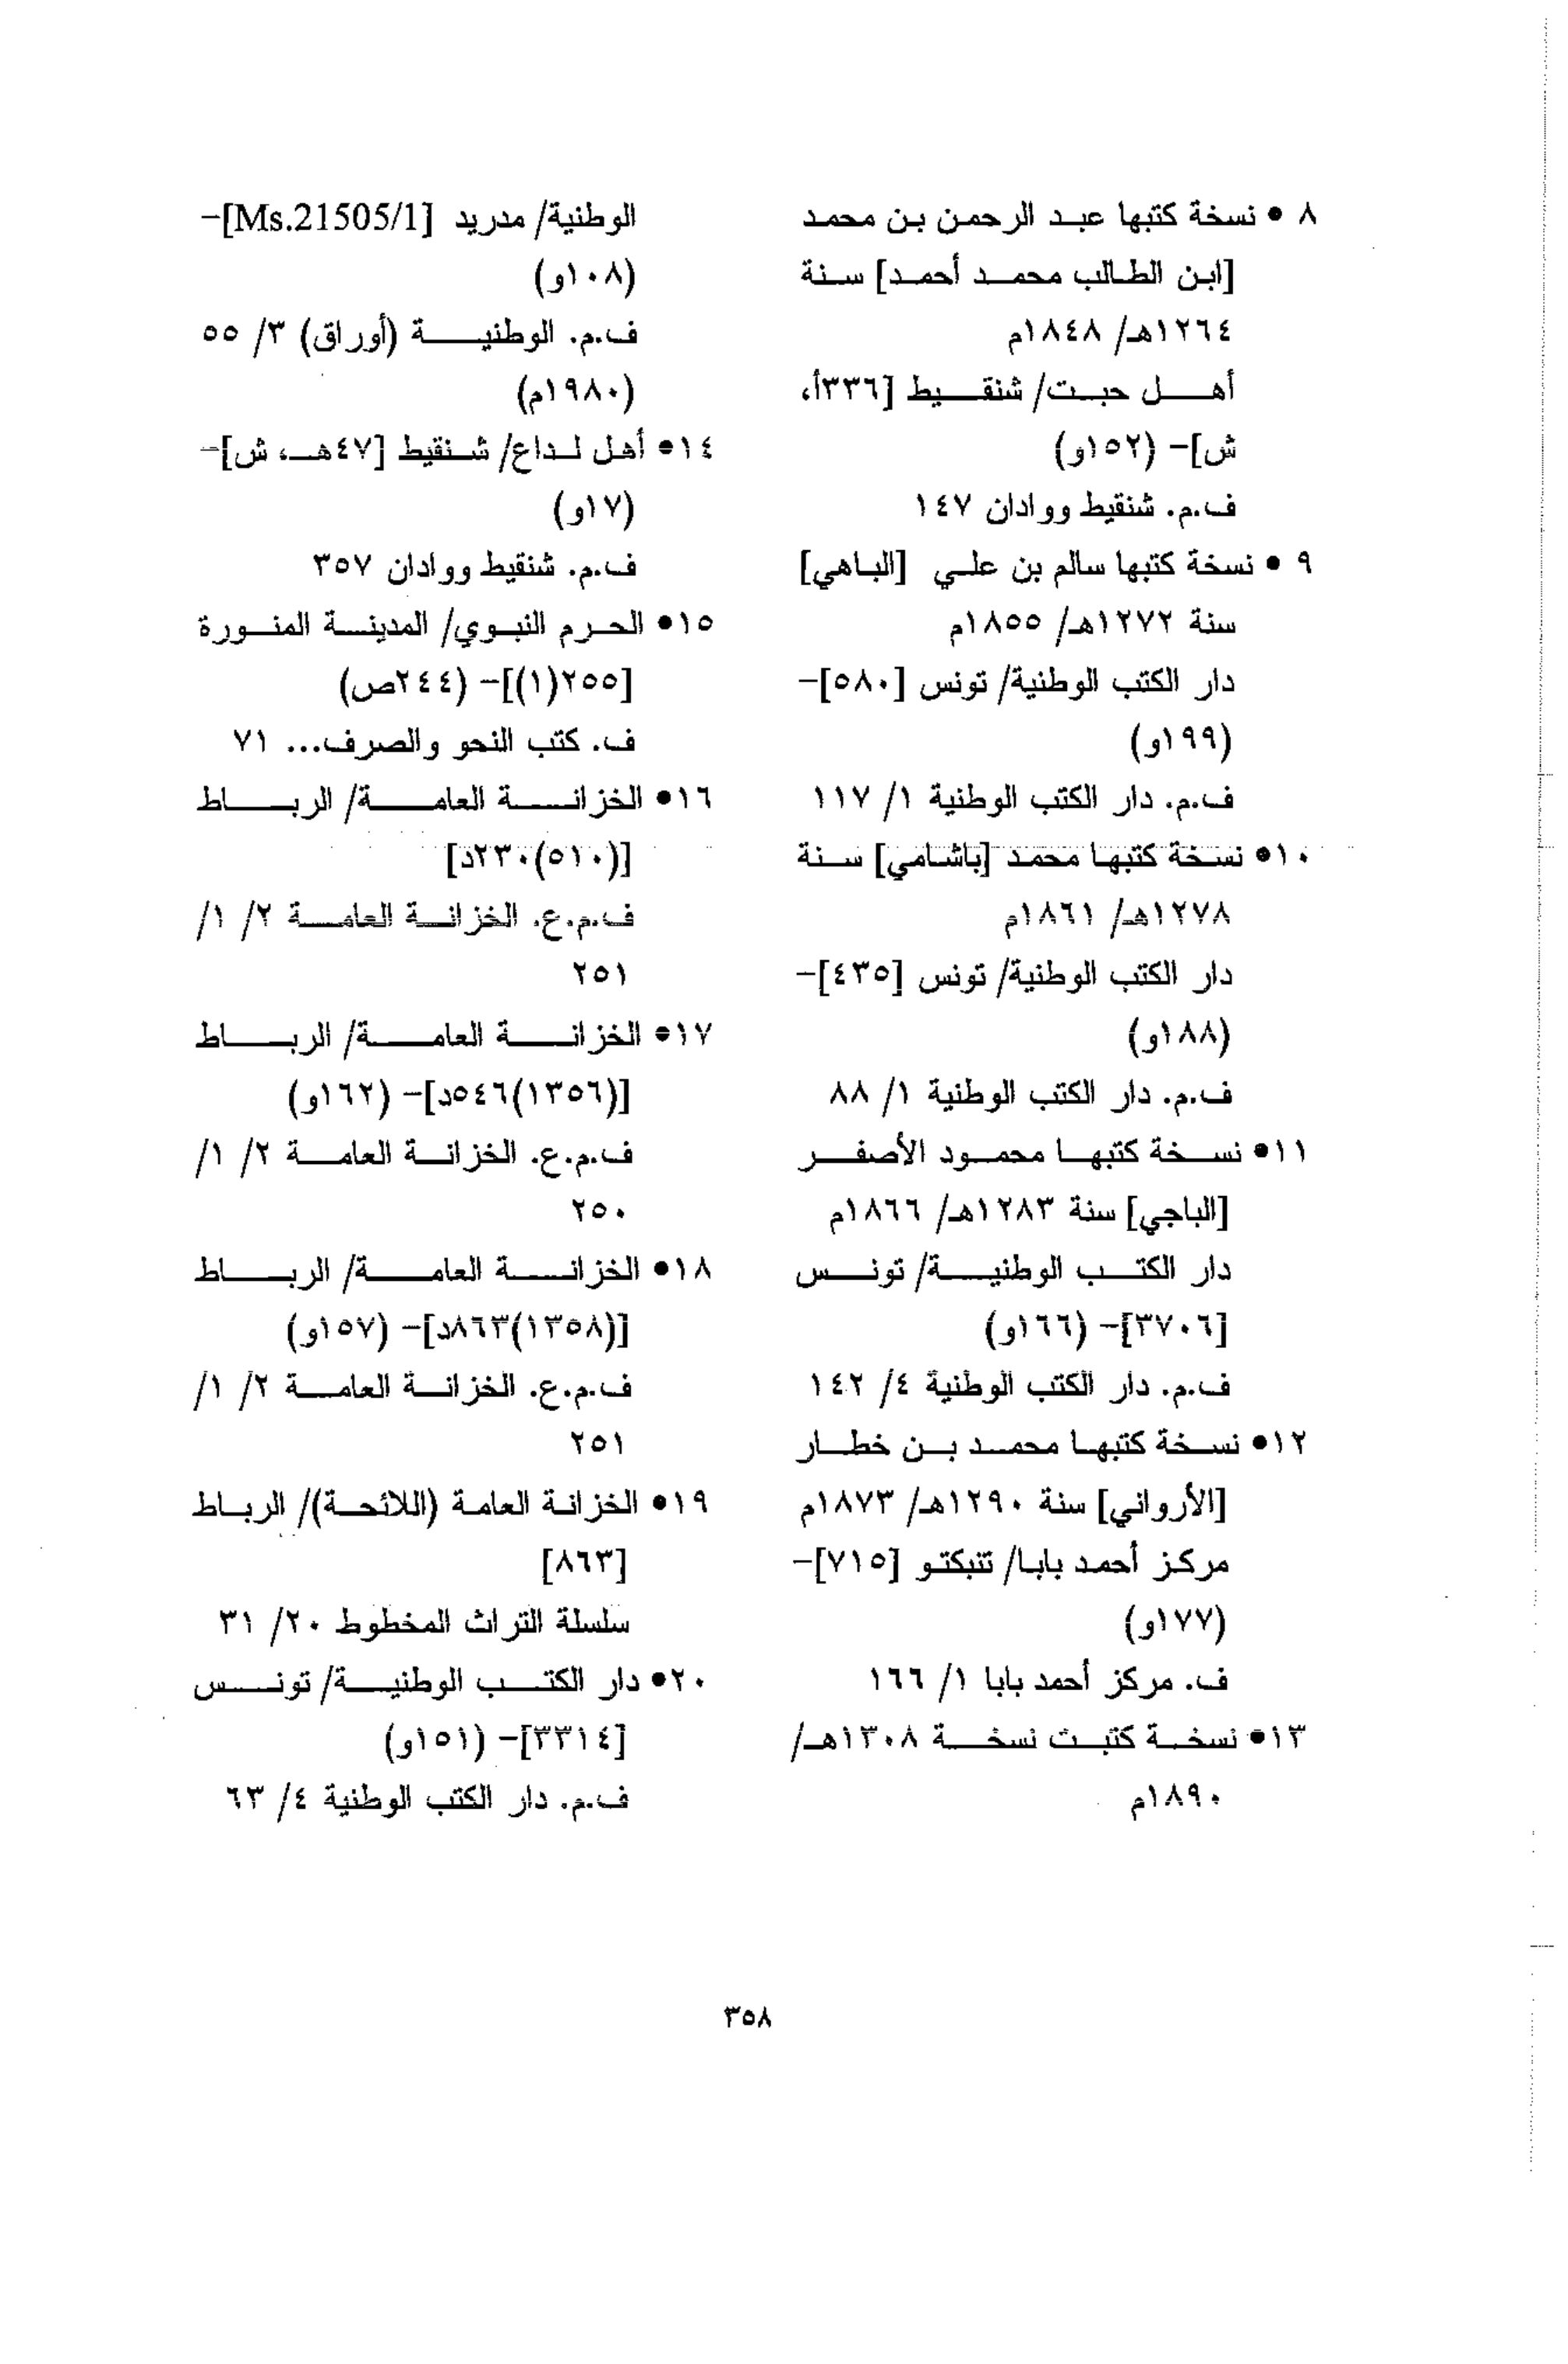 ٨ • نسخة كتبها عبد الرحمن بن محمد
[ابن الطالب محمد أحمد] سنة
١٢٦٤هـ/ ١٨٤٨م
أهل حبت/ شنقيط [٣٣٦أ،
ش]- (١٥٢و)
ف.م. شنقيط ووادان ١٤٧
٩ • نسخة كتبها سالم بن علي [الباهي]
سنة ١٢٧٢هـ/ ١٨٥٥م
دار الكتب الوطنية/ تونس [٥٨٠]-
(١٩٩و)
ف.م. دار الكتب الوطنية ١/ ١١٧
١٠• نسخة كتبها محمد [باشامي] سنة
١٢٧٨هـ/ ١٨٦١م
دار الكتب الوطنية/ تونس [٤٣٥]-
(١٨٨و)
ف.م. دار الكتب الوطنية ١/ ٨٨
١١• نسخة كتبها محمود الأصفر
[الباجي] سنة ١٢٨٣هـ/ ١٨٦٦م
دار الكتب الوطنية/ تونس
[٣٧٠٦]- (١٦٦و)
ف.م. دار الكتب الوطنية ٤/ ١٤٢
١٢• نسخة كتبها محمد بن خطار
[الأرواني] سنة ١٢٩٠هـ/ ١٨٧٣م
مركز أحمد بابا/ تنبكتو [٧١٥]-
(١٧٧و)
ف. مركز أحمد بابا ١/ ١٦٦
١٣• نسخة كتبت نسخة ١٣٠٨هـ/
١٨٩٠م
الوطنية/ مدريد [Ms.21505/1]-
(١٠٨و)
ف.م. الوطنية (أوراق) ٣/ ٥٥
(١٩٨٠م)
١٤• أهل لداع/ شنقيط [٤٧هـ، ش]-
(١٧و)
ف.م. شنقيط ووادان ٣٥٧
١٥• الحرم النبوي/ المدينة المنورة
[٢٥٥(١)]- (٢٤٤ص)
ف. كتب النحو والصرف... ٧١
١٦• الخزانة العامة/ الرباط
[(٥١٠)٢٣٠د]
ف.م.ع. الخزانة العامة ٢/ ١/
٢٥١
١٧• الخزانة العامة/ الرباط
[(١٣٥٦)٥٤٦د]- (١٦٢و)
ف.م.ع. الخزانة العامة ٢/ ١/
٢٥٠
١٨• الخزانة العامة/ الرباط
[(١٣٥٨)٨٦٣د]- (١٥٧و)
ف.م.ع. الخزانة العامة ٢/ ١/
٢٥١
١٩• الخزانة العامة (اللائحة)/ الرباط
[٨٦٣]
سلسلة التراث المخطوط ٢٠/ ٣١
٢٠• دار الكتب الوطنية/ تونس
[٣٣١٤]- (١٥١و)
ف.م. دار الكتب الوطنية ٤/ ٦٣
٣٥٨